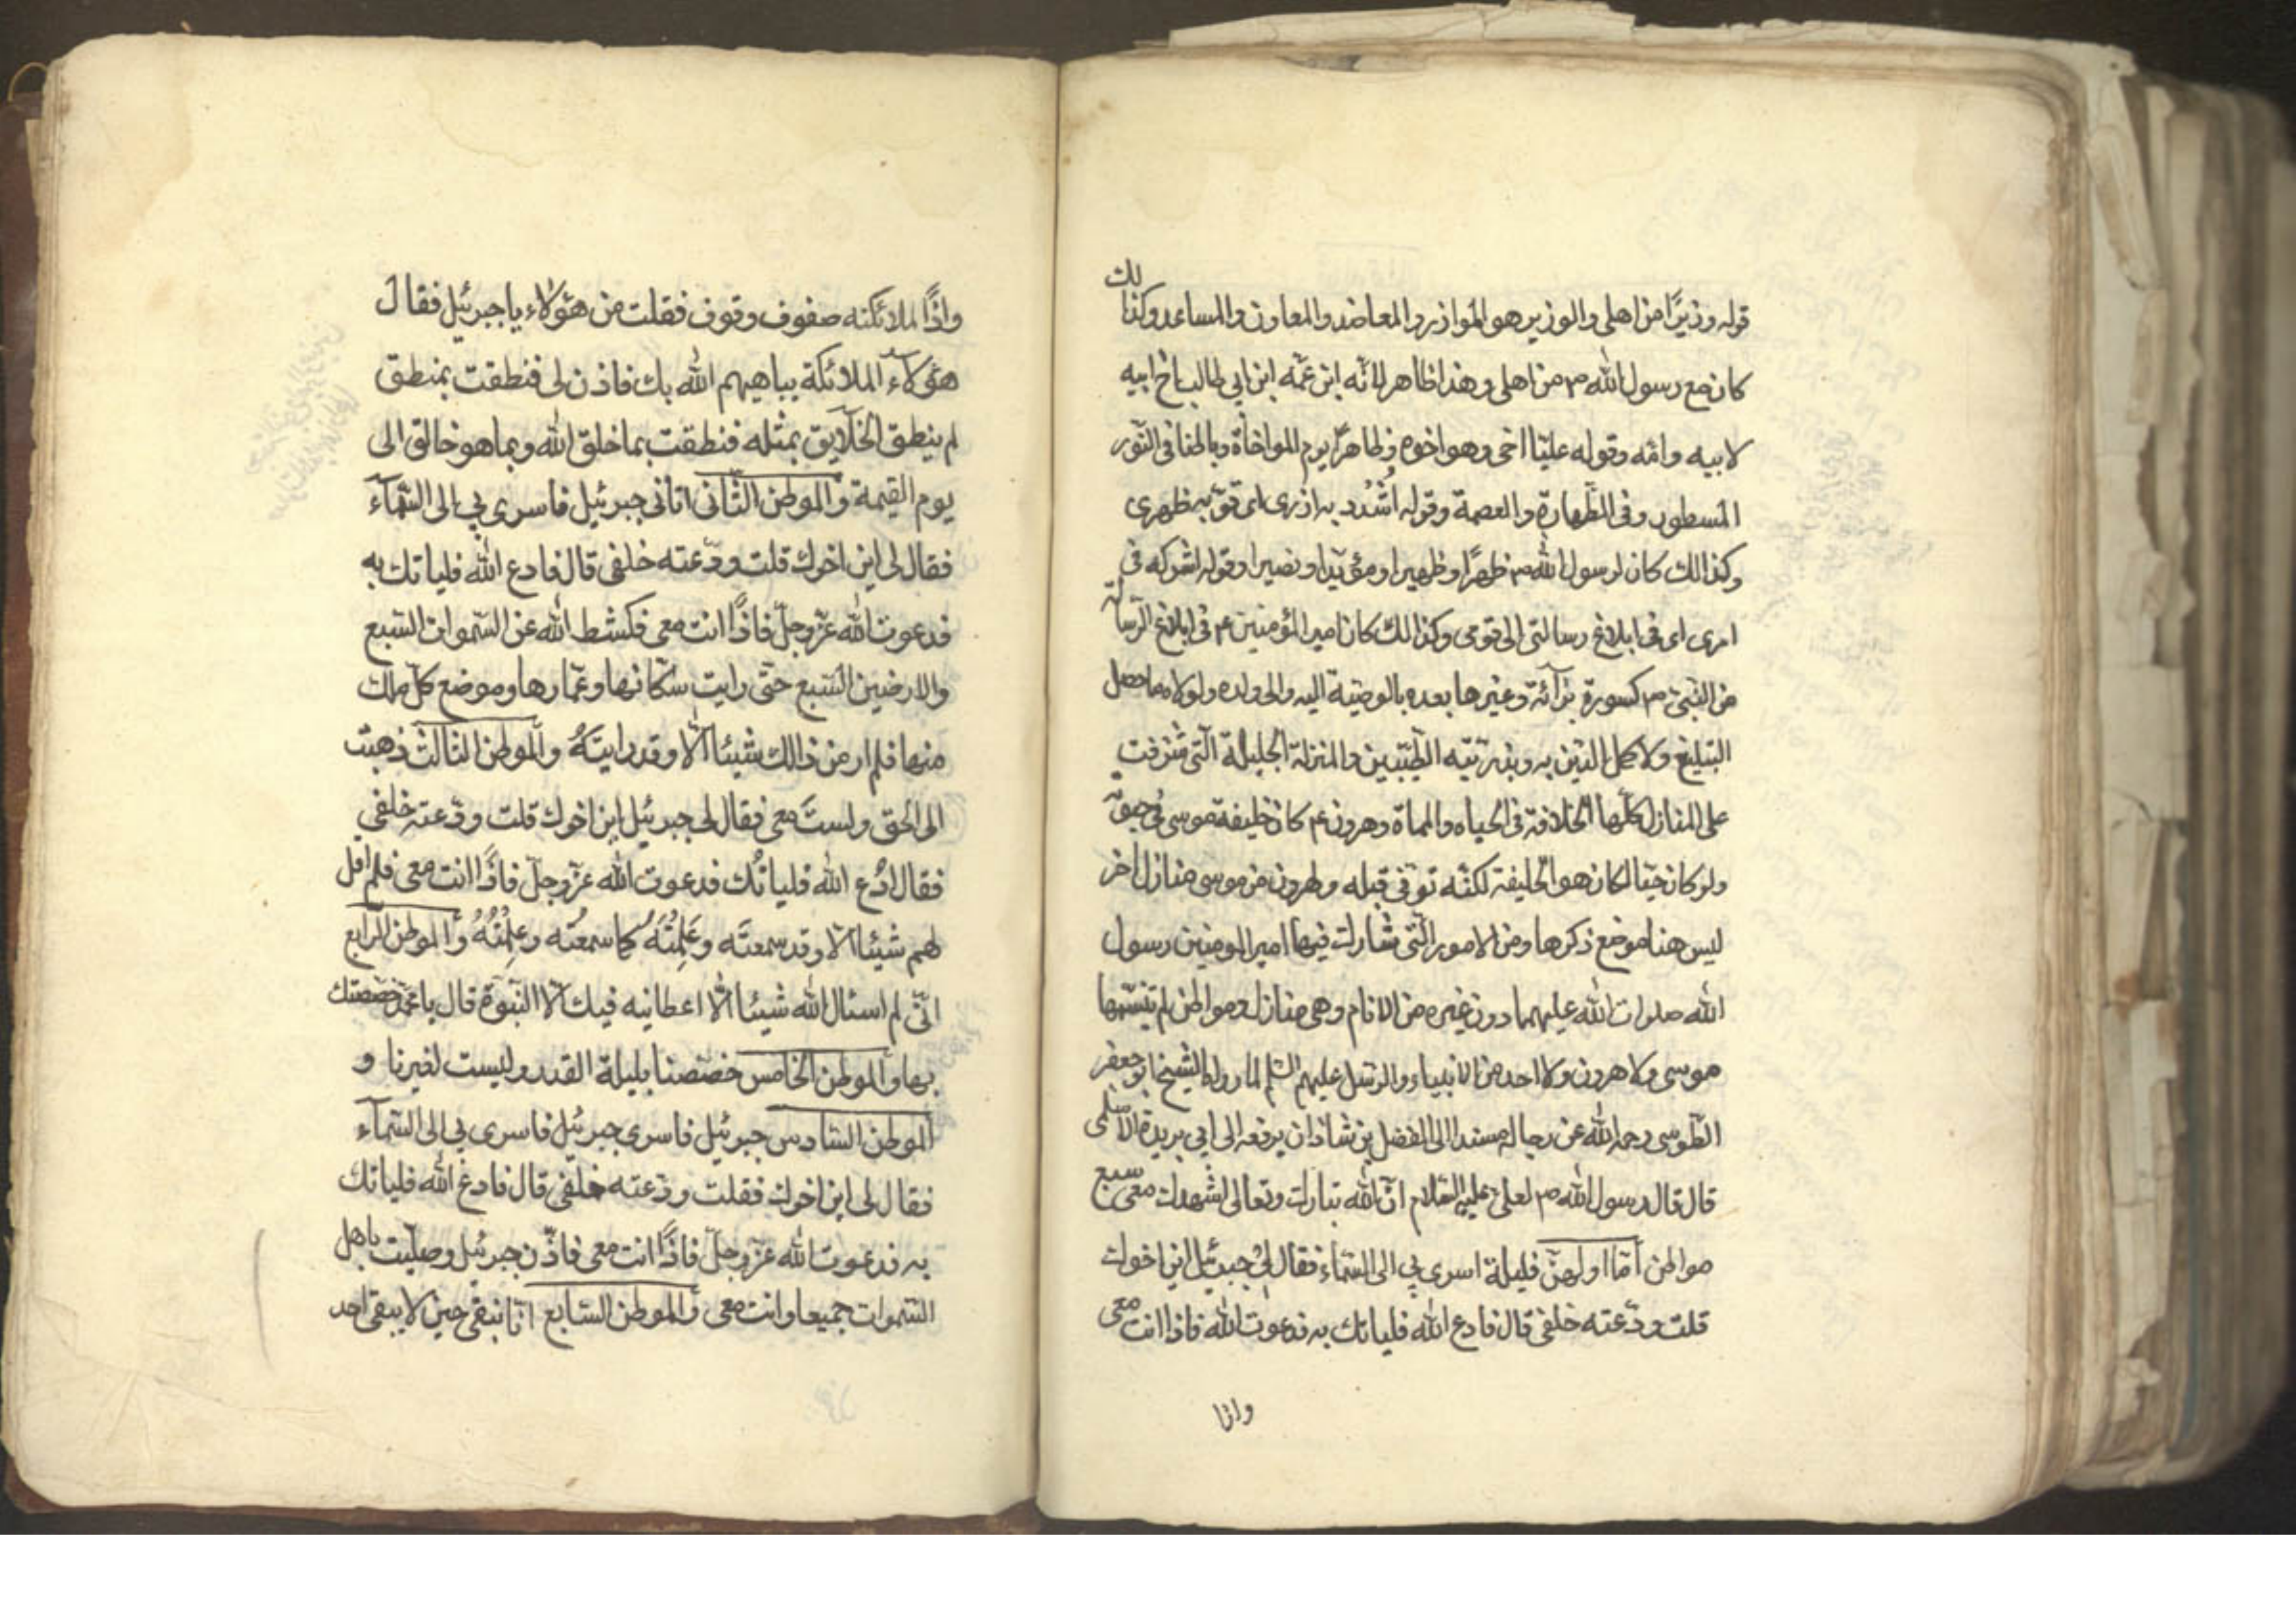 قوله وزيرًا من اهلى والوزير هو الموازر والمعاضد والمعاون والمساعد وكذالك
كان مع رسول الله ص من اهلى وهذا ظاهر لانّه ابن عمّه ابن ابي طالب اخ ابيه
لابيه وامّه وقوله عليّا اخى وهو اخوه ظاهرًا يوم المواخاة وباطنا فى النّور
المسطور وفى الطّهارة والعصمة وقوله اُشْدُد به ازرى اى قوّ به ظهرى
وكذالك كان لرسول الله ص ظهرًا وظهيرا ومؤيّدا ونصيرا وقوله اشركه فى
امرى اى فى ابلاغ رسالتى الى قومى وكذالك كان امير المؤمنين ع فى ابلاغ الرّسالة
من النّبىّ ص كسورة برآئة وغيرها بعده بالوصيّة اليه والى ولده ولولاه ما حصل
التبليغ ولا كمل الدّين به وبذرّيّته الطّيّبين والمنزلة الجليلة الّتى شرفت
على المنازل كلّها الخلافة فى الحياه والمماة وهرون ع كان خليفة موسى فى حيوته
ولو كان حيّا لكان هو الخليفة لكنّه توفّى قبله ولهرون من موسى منازل اخر
ليس هنا موضع ذكرها ومن الامور الّتى شارك فيها امير المومنين رسول
الله صلوات الله عليهما دون غيره من الانام وهى منازل ومواطن لم
موسى ولا هرون ولا احد من الانبياء والرّسل عليهم السّلم لما رواه الشيخ ابو جعفر
الطّوسى رحمه الله عن رجاله مسندا الى الفضل بن شاذان يرفعه الى ابي بريدة الاسلمى
قال قال رسول الله ص لعلىّ عليه السّلام انّ الله تبارك وتعالى اشهدك معى سبع
مواطن امّا اولهنّ فليلة اسرى بي الى السّماء فقال لى جبرئيل اين اخوك
قلت ودّعته خلفى قال فادع الله فلياتك به فدعوت الله فاذا انت معى
واذا
واذًا الملائكته صفوف وقوف فقلت من هؤلاء يا جبرئيل فقال
هؤلاء الملائكة يباهيهم الله بك فاذن لى فنطقت بمنطق
لم ينطق الخلايق بمثله فنطقت بما خلق الله وبما هو خالق الى
يوم القيمة والموطن الثّانى اتانى جبرئيل فاسرى بي الى السّمآء
فقال لى اين اخوك قلت ودّعته خلفى قال فادع الله فلياتك به
فدعوت الله عزّ وجلّ فاذًا انت معى فكشط الله عن السّموات السّبع
والارضين السّبع حتّى رايت سكّانها وعمّارها وموضع كلّ ملك
منها فلم ار من ذالك شيئا الّا وقد رايتَهُ والموطن الثالث ذهبت
الى الحق ولستَ معى فقال لى جبرئيل اين اخوك قلت ودّعته خلفى
فقال ادْع الله فلياتك فدعوت الله عزّ وجلّ فاذًا انت معى فلم اقل
لهم شيئا الّا وقد سمعتَه وعَلِمْتَهُ كما سمعتُه وعلِمْتُهُ والموطن الرّابع
انّى لم اسئال الله شيئا الّا اعطانيه فيك الّا النّبوّة قال يا محمّد خصصتك
بها والموطن الخامس خصّصنا بليلة القدر وليست لغيرنا و
الموطن السّادس جبرئيل فاسرى جبرئيل فاسرى بي الى السّمآء
فقال لى اين اخوك فقلت ودّعته خلفى قال فادع الله فلياتك
به فدعوت الله عزّ وجلّ فاذًا انت معى فاذّن جبرئيل وصلّيت باهل
السّموات جميعا وانت معى والموطن السّابع انّا نبقى حين لا يبقى احد